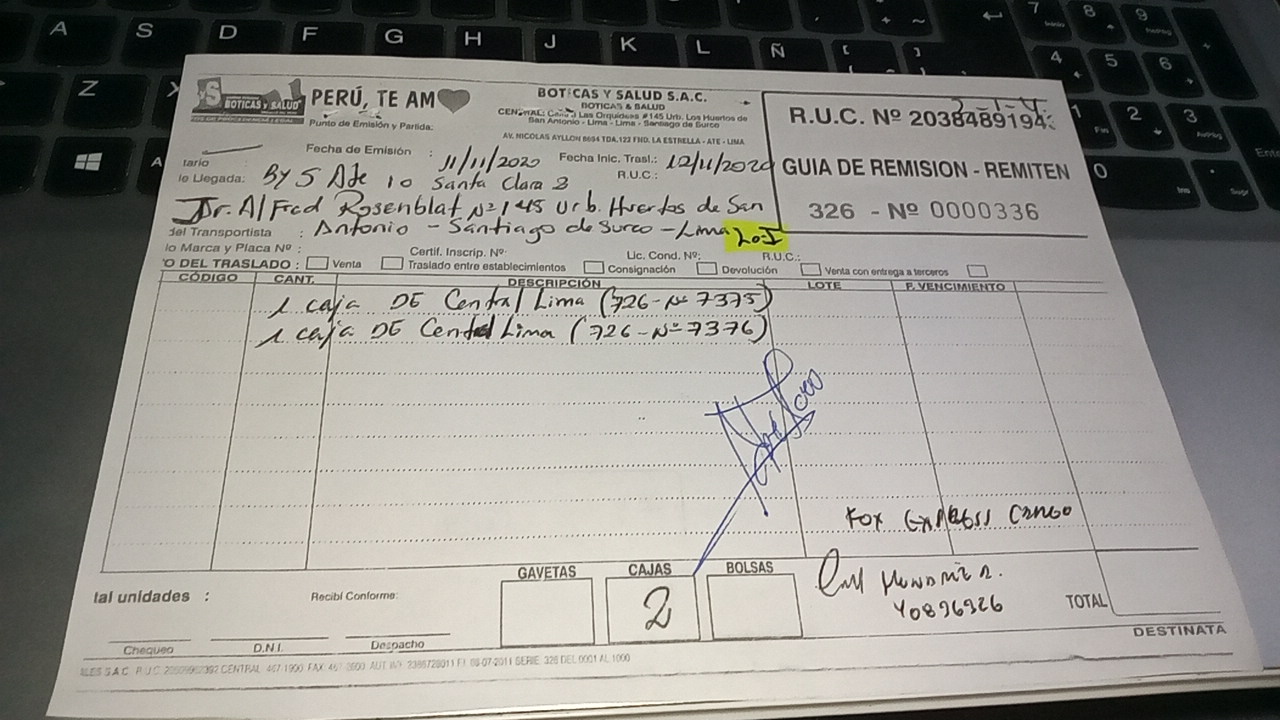 BOTICAS Y SALUD
PERÚ, TE AM
Punto de Emisión y Partida:
BOTICAS Y SALUD S.A.C.
BOTICAS & SALUD
CENTRAL: Calle Las Orquideas #145 Urb. Los Huertos de
San Antonio - Lima - Lima - Santiago de Surco
AV. NICOLAS AYLLON 8694 TDA.123 FND. LA ESTRELLA - ATE - LIMA
R.U.C. Nº 2038489194
GUIA DE REMISION - REMITEN
326 - Nº 0000336
Fecha de Emisión : 11/11/2020 Fecha Inic. Trasl.: 12/11/2020
tario
R.U.C.:
Llegada: By S Ate 10 Santa Clara 3
Jr. Alfred Rosenblat Nº 145 Urb. Huertos de San
del Transportista : Antonio - Santiago de Surco - Lima
Marca y Placa Nº : Certif. Inscrip. Nº Lic. Cond. Nº: R.U.C.:
O DEL TRASLADO : Venta Traslado entre establecimientos Consignación Devolución Venta con entrega a terceros
CÓDIGO CANT. DESCRIPCIÓN LOTE F. VENCIMIENTO
1 caja DE Central Lima (726-Nº 7375)
1 caja DE Central Lima (726-Nº 7376)
FOX EXPRESS CARGO
40896926
GAVETAS CAJAS BOLSAS
2
tal unidades :
Recibí Conforme:
TOTAL
Chequeo D.N.I. Despacho
DESTINATA
SERIE. 326 DEL 0001 AL 1000
A S D F G H J K L Ñ
Z
7 8 9
4 5 6
1 2 3
0